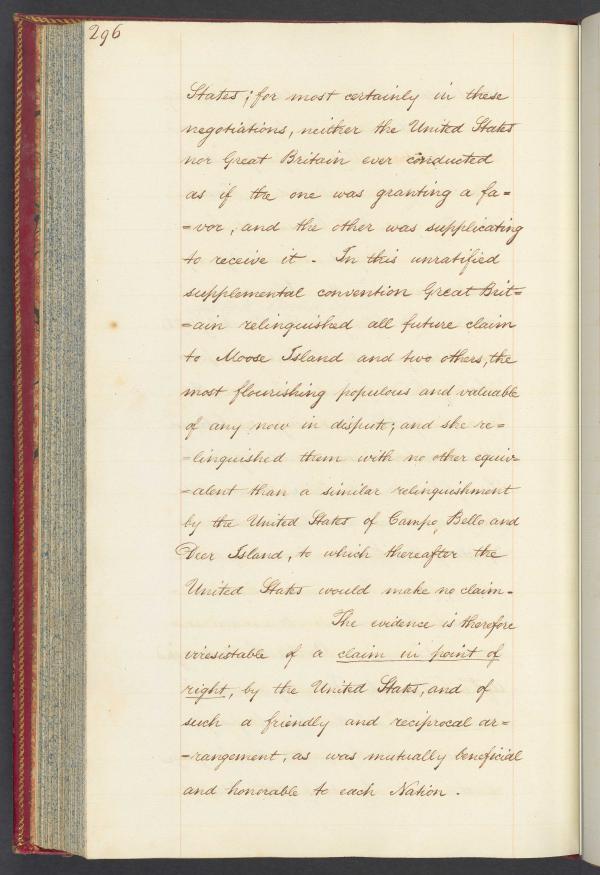 296
States; for most certainly in these
negotiations, neither the United States
nor Great Britain ever conducted
as if the one was granting a fa=
=vor, and the other was supplicating
to receive it. In this unratified
supplemental convention Great Brit=
=ain relinquished all future claim
to Moose Island and two others, the
most flourishing populous and valuable
of any now in dispute; and she re=
=linquished them with no other equiv=
=alent than a similar relinquishment
by the United States of Campo Bello and
Deer Island, to which thereafter the
United States would make no claim.
The evidence is therefore
irresistable of a claim in point of
right, by the United States, and of
such a friendly and reciprocal ar=
=rangement, as was mutually beneficial
and honorable to each Nation.